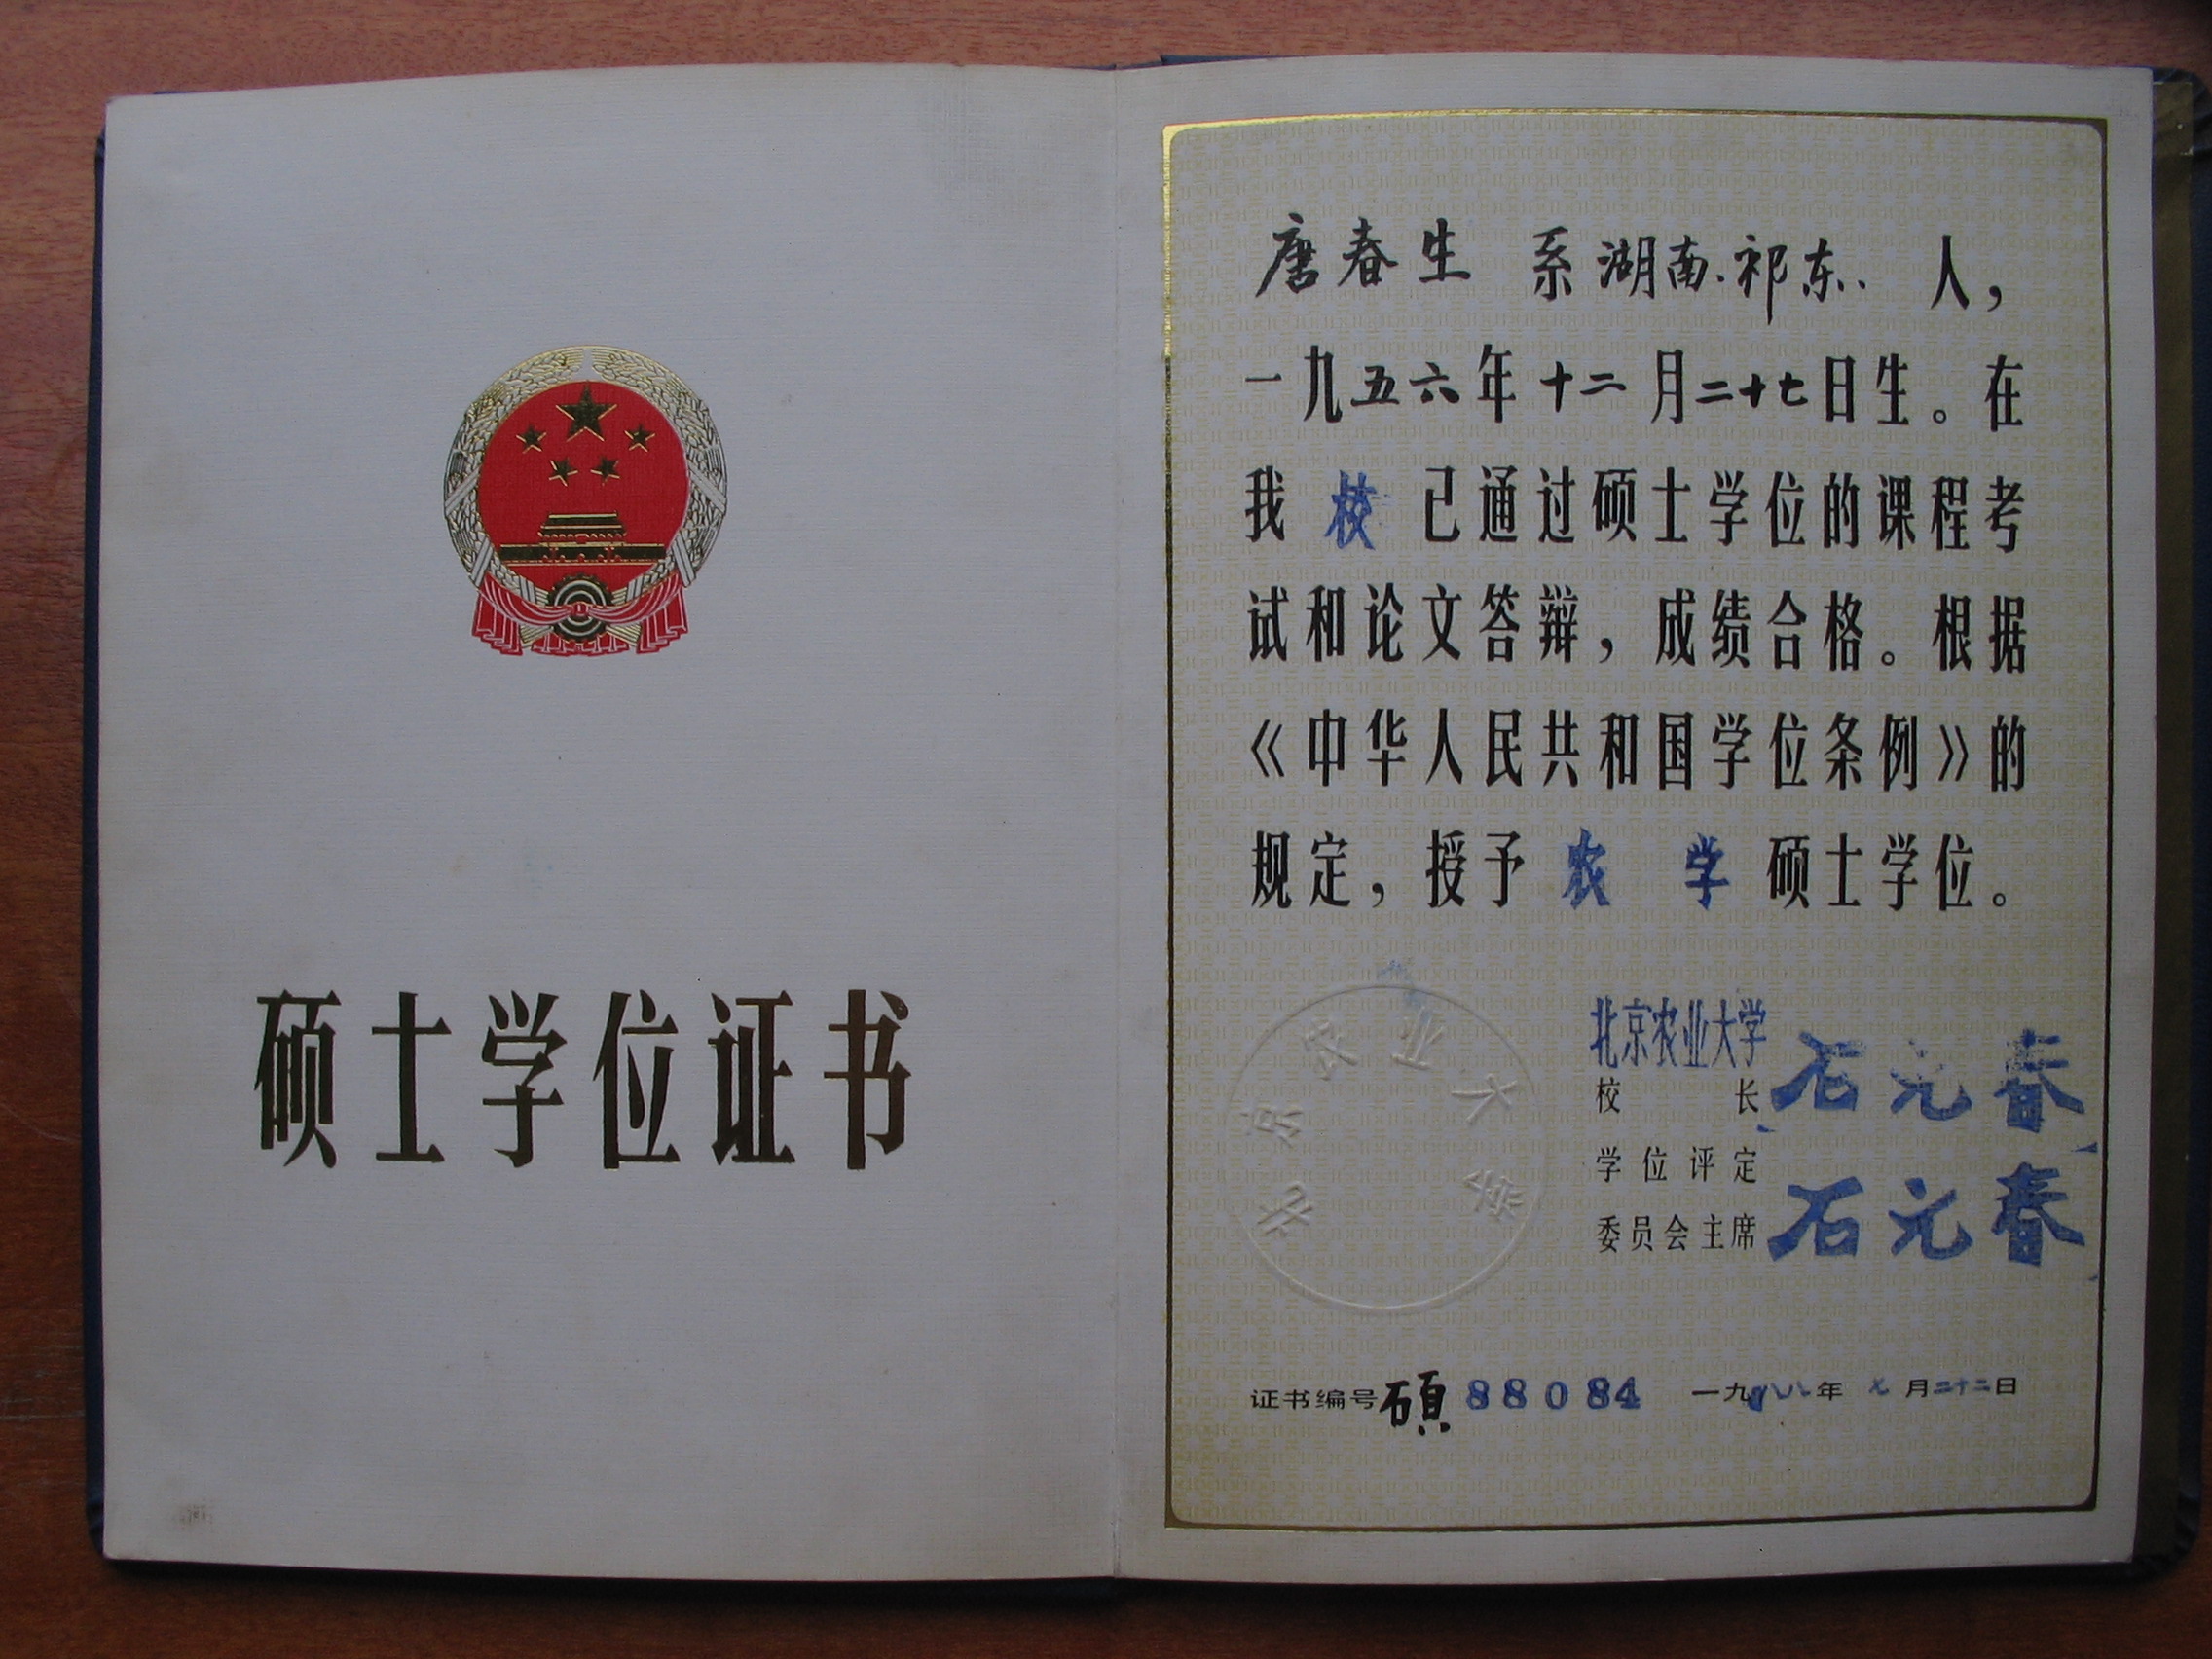 硕士学位证书
唐春生 系湖南祁东 人，
一九五六年十二月二十七日生。在
我校已通过硕士学位的课程考
试和论文答辩，成绩合格。根据
《中华人民共和国学位条例》的
规定，授予农学硕士学位。
北京农业大学
北京农业大学
校长 石元春
学位评定
委员会主席 石元春
证书编号 碩 88084 一九八八年七月二十二日